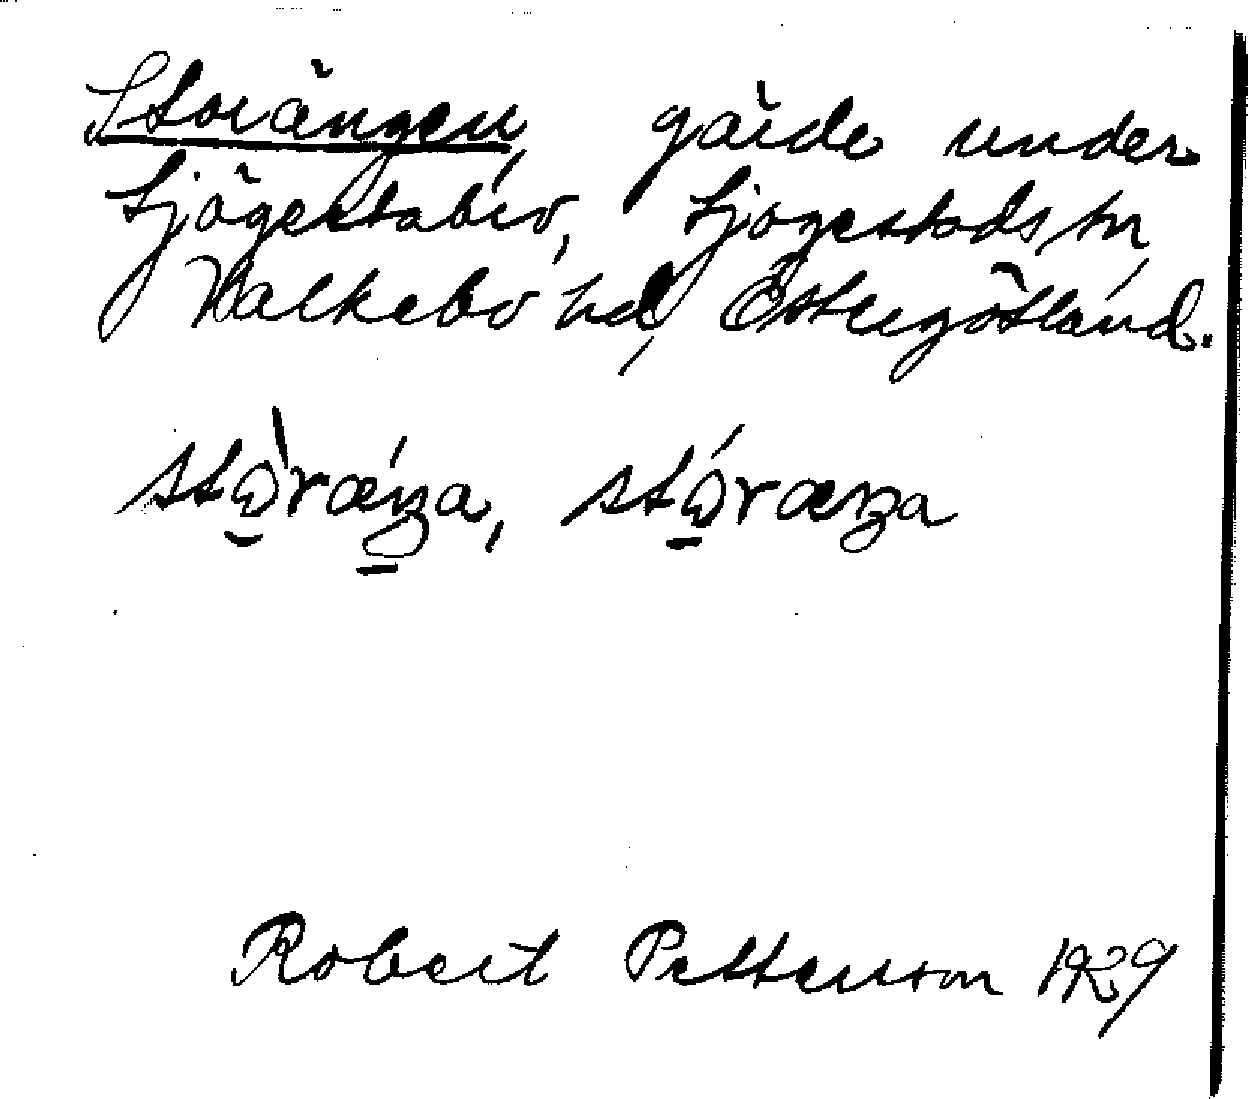 Storängen, gärde under
Sjögestabro, Sjögestads sn
Valkebo hd, Östergötland.
stὼrǽŋa, stώræŋa
Robert Petterson 1929